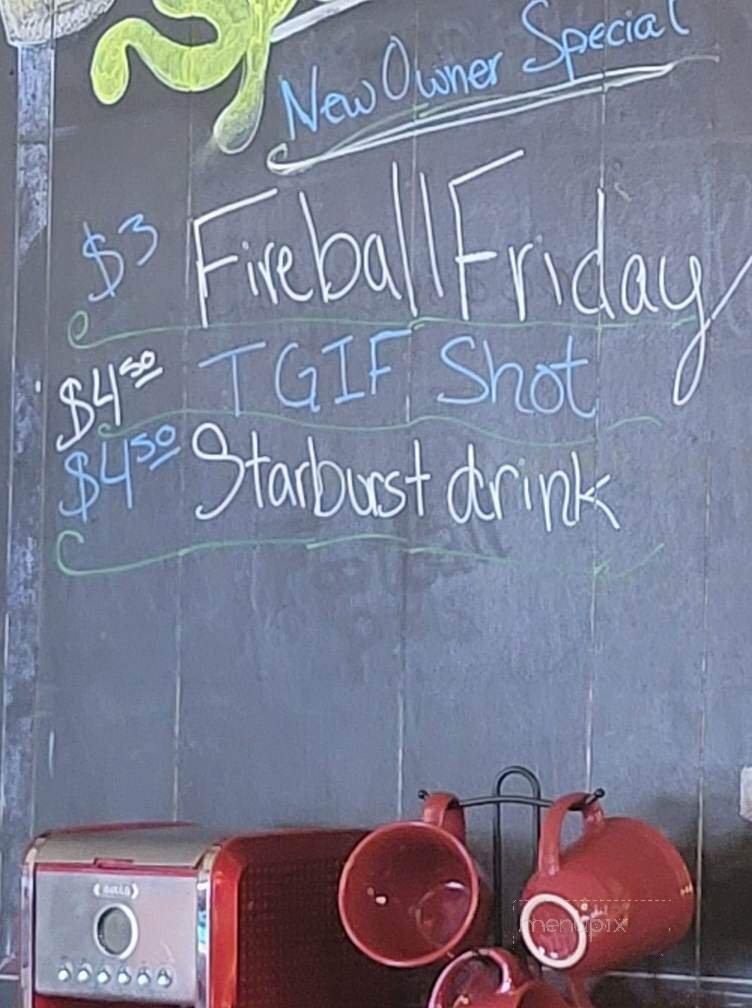 New Owner Special
$3 Fireball Friday
$4.50 TGIF Shot
$4.50 Starburst drink
menupix